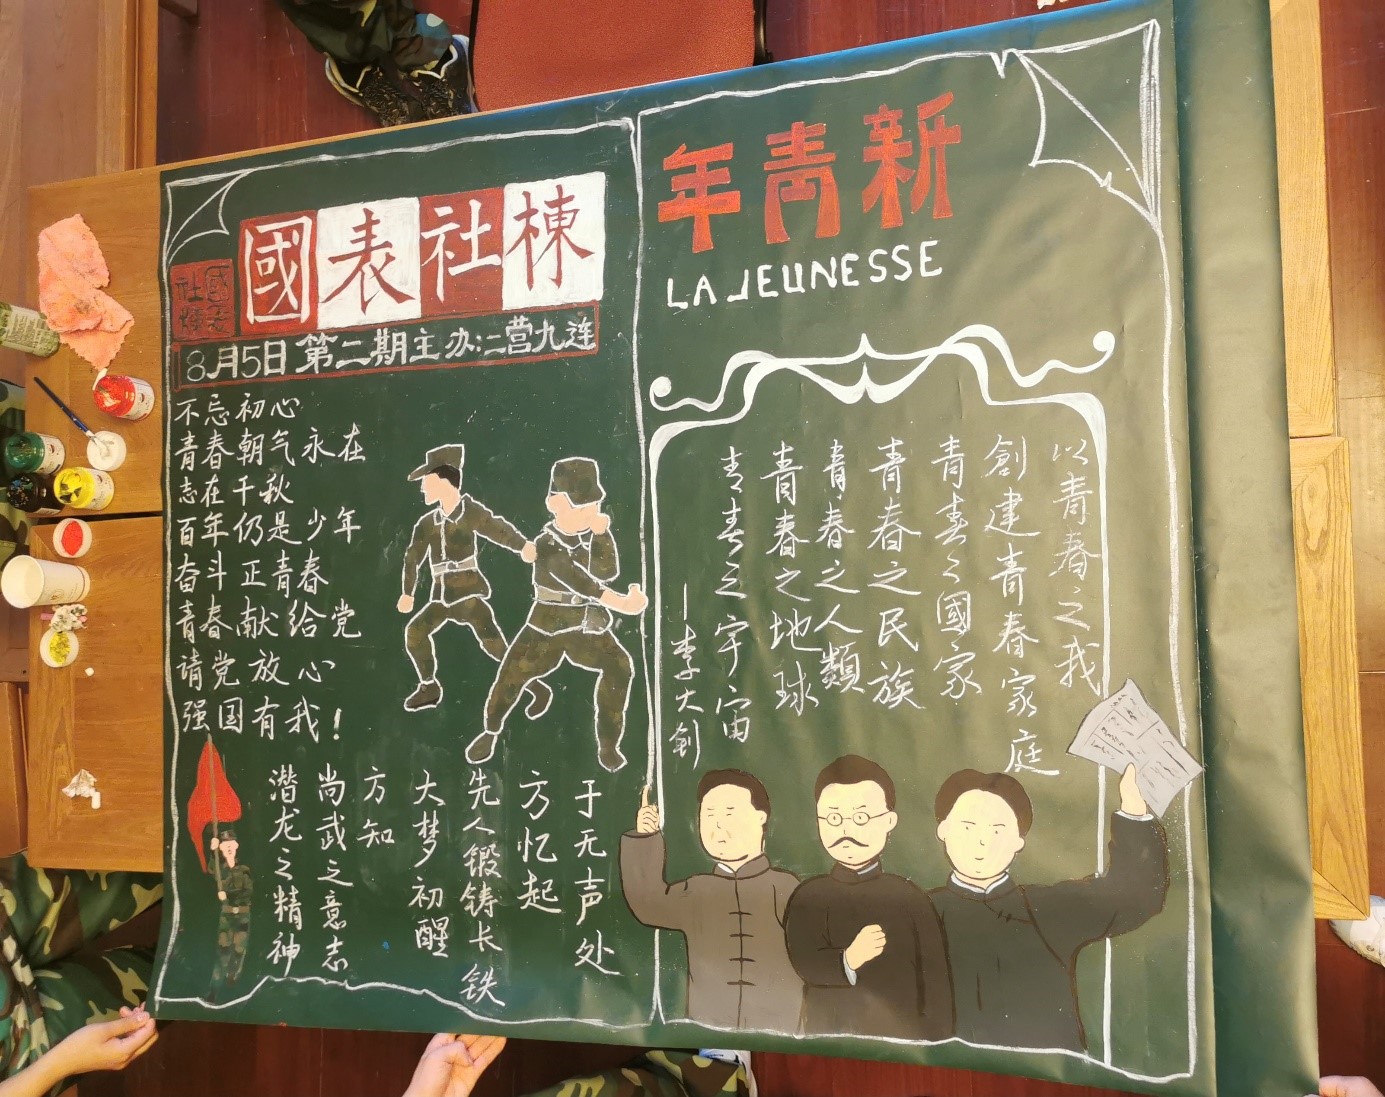 國表社棟
國表社棟
8月5日 第二期主办:二营九连
不忘初心
青春朝气永在
志在千秋
百年仍是少年
奋斗正青春
青春献给党
请党放心
强国有我!
于无声处
方忆起
先人锻铸长铁
大梦初醒
方知
尚武之意志
潜龙之精神
新青年
LA JEUNESSE
以青春之我
創建青春家庭
青春之國家
青春之民族
青春之人類
青春之地球
青春之宇宙
—李大釗